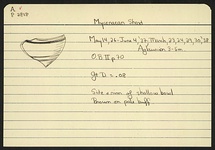 A
P 2898
Mycenaean Sherd
May 14, 26 - June 4, 26, March, 27, 29, 30, 38
3-6m
O.B. II p.70
D = .08
Side + rim of shallow bowl
Brown on pale buff